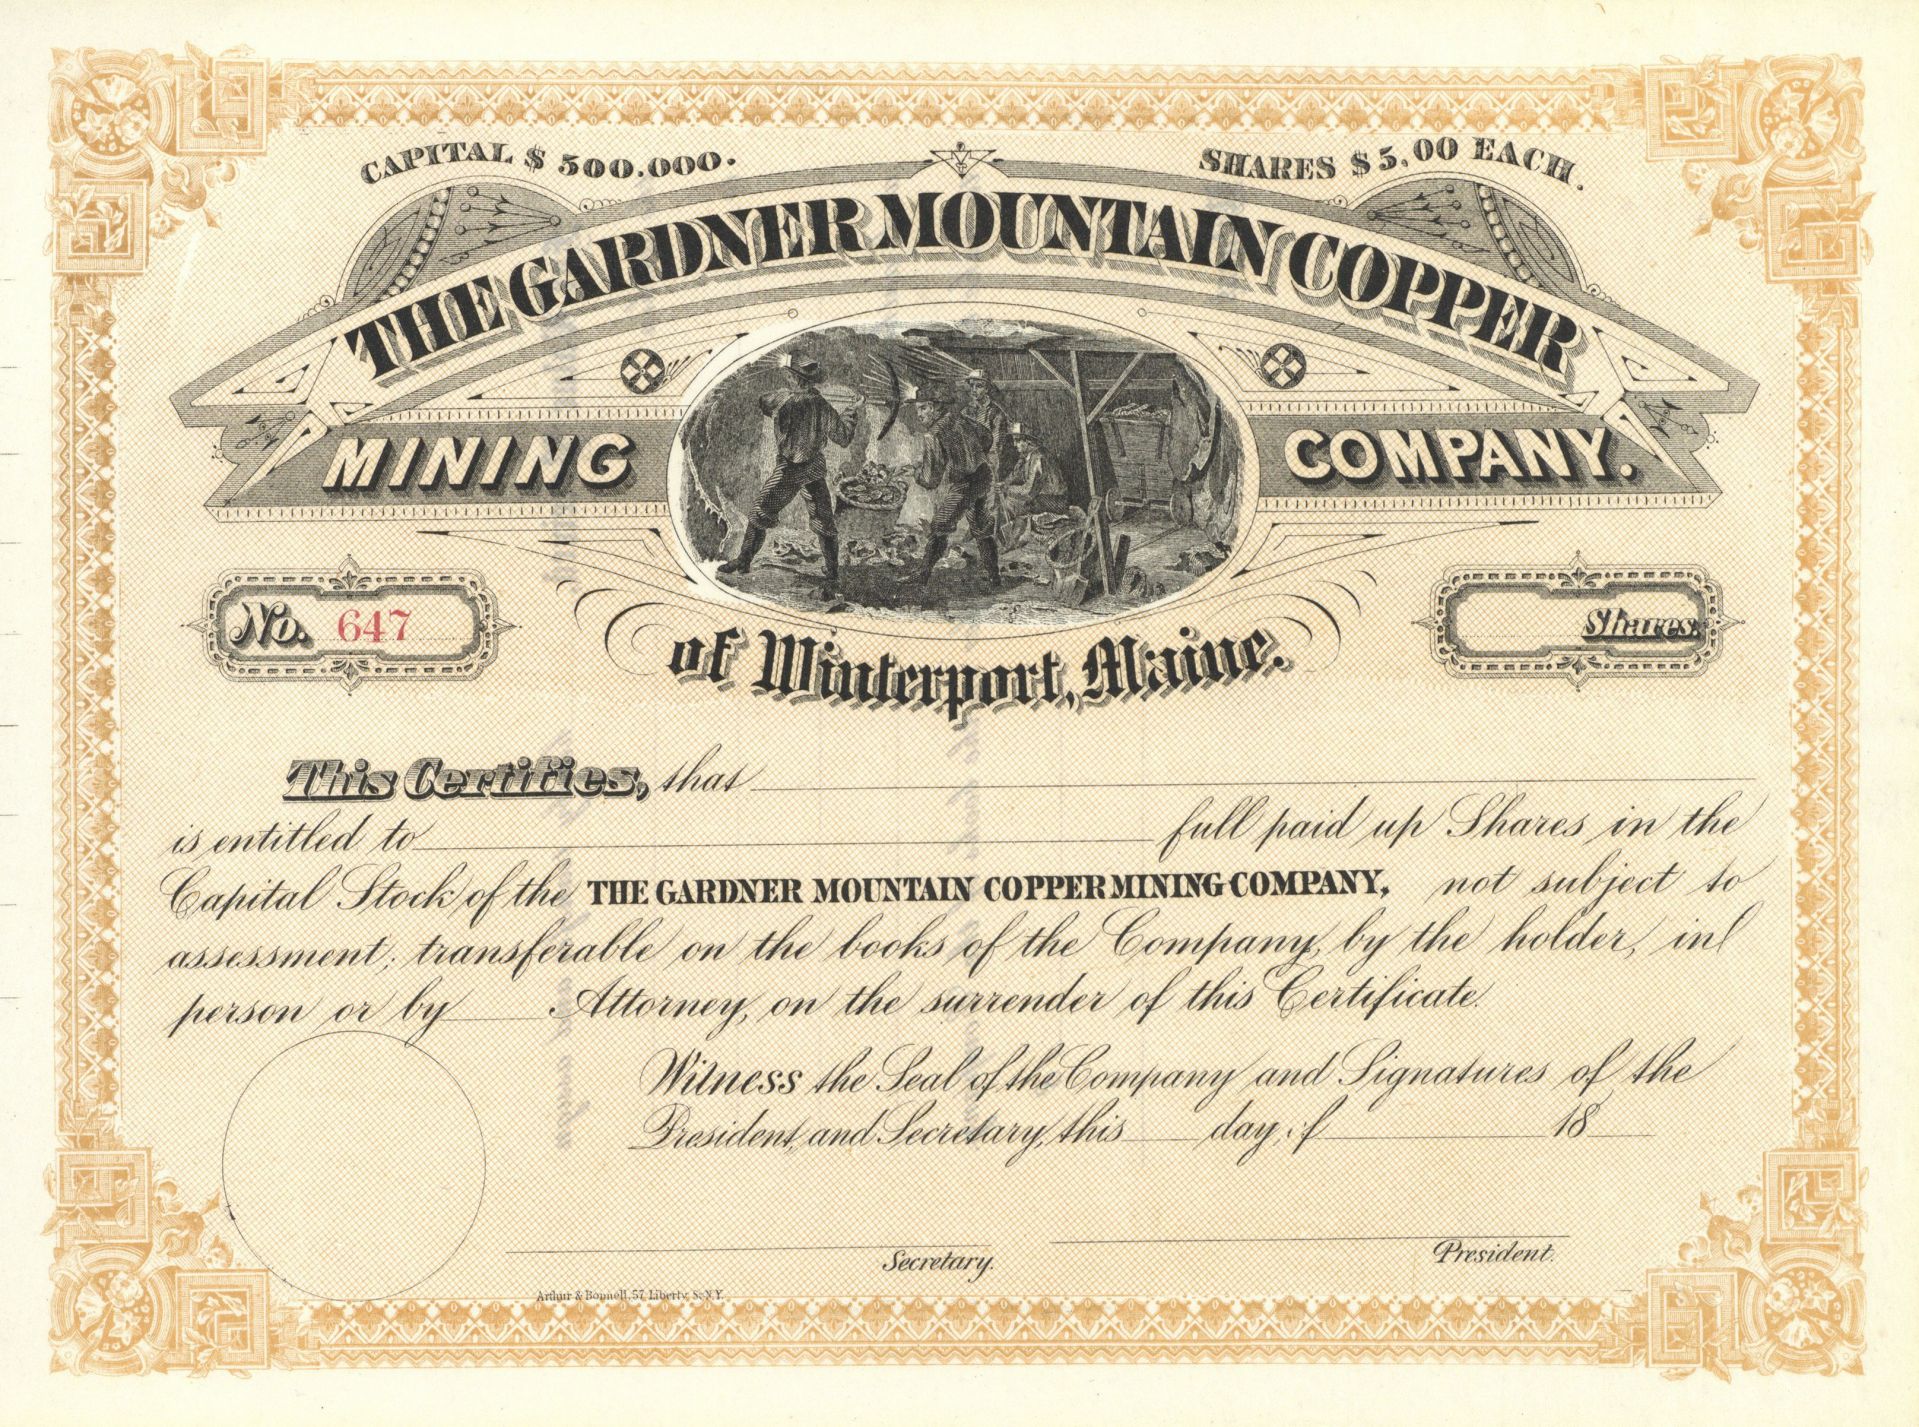 CAPITAL $ 500.000.
SHARES $ 5.00 EACH.
THE GARDNER MOUNTAIN COPPER
MINING COMPANY.
No. 647
Shares.
of Winterport, Maine.
This Certifies, that
is entitled to full paid up Shares in the
Capital Stock of the THE GARDNER MOUNTAIN COPPER MINING COMPANY, not subject to
assessment; transferable on the books of the Company, by the holder, in
person or by Attorney, on the surrender of this Certificate.
Witness the Seal of the Company and Signatures of the
President, and Secretary, this day of 18
Secretary.
President.
Arthur & Bonnell, 57 Liberty St. N.Y.